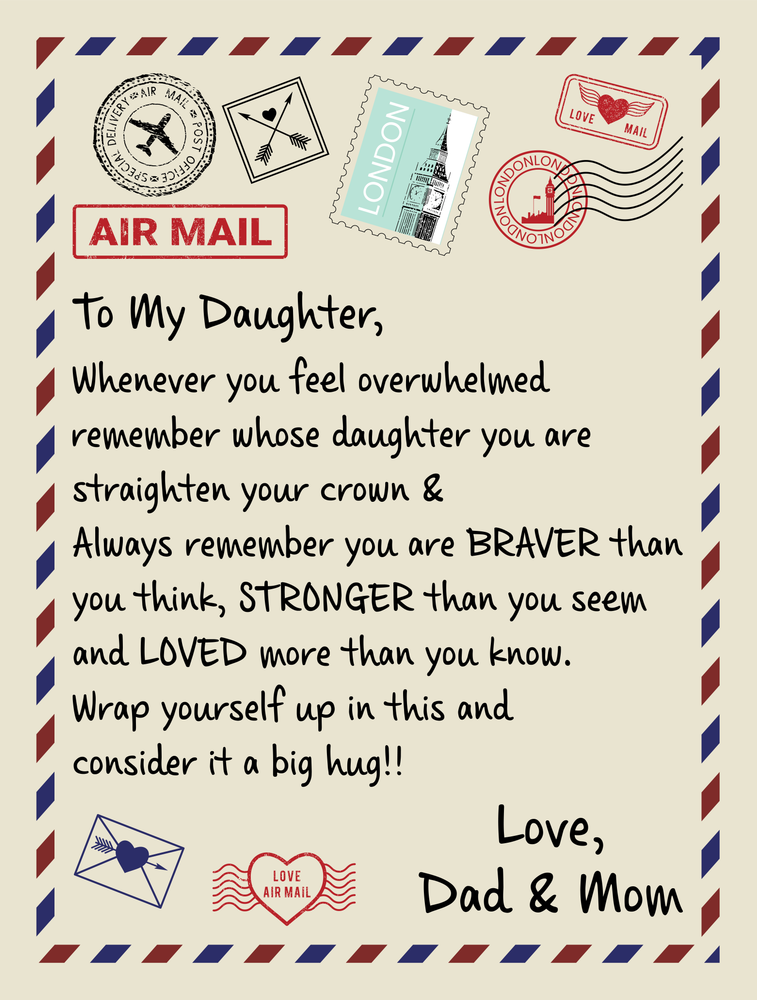 SPECIAL DELIVERY AIR MAIL POST OFFICE
LONDON
LOVE MAIL
LONDONLONDONLONDONLONDONLONDON
AIR MAIL
To My Daughter,
Whenever you feel overwhelmed
remember whose daughter you are
straighten your crown &
Always remember you are BRAVER than
you think, STRONGER than you seem
and LOVED more than you know.
Wrap yourself up in this and
consider it a big hug!!
Love,
Dad & Mom
LOVE
AIR MAIL